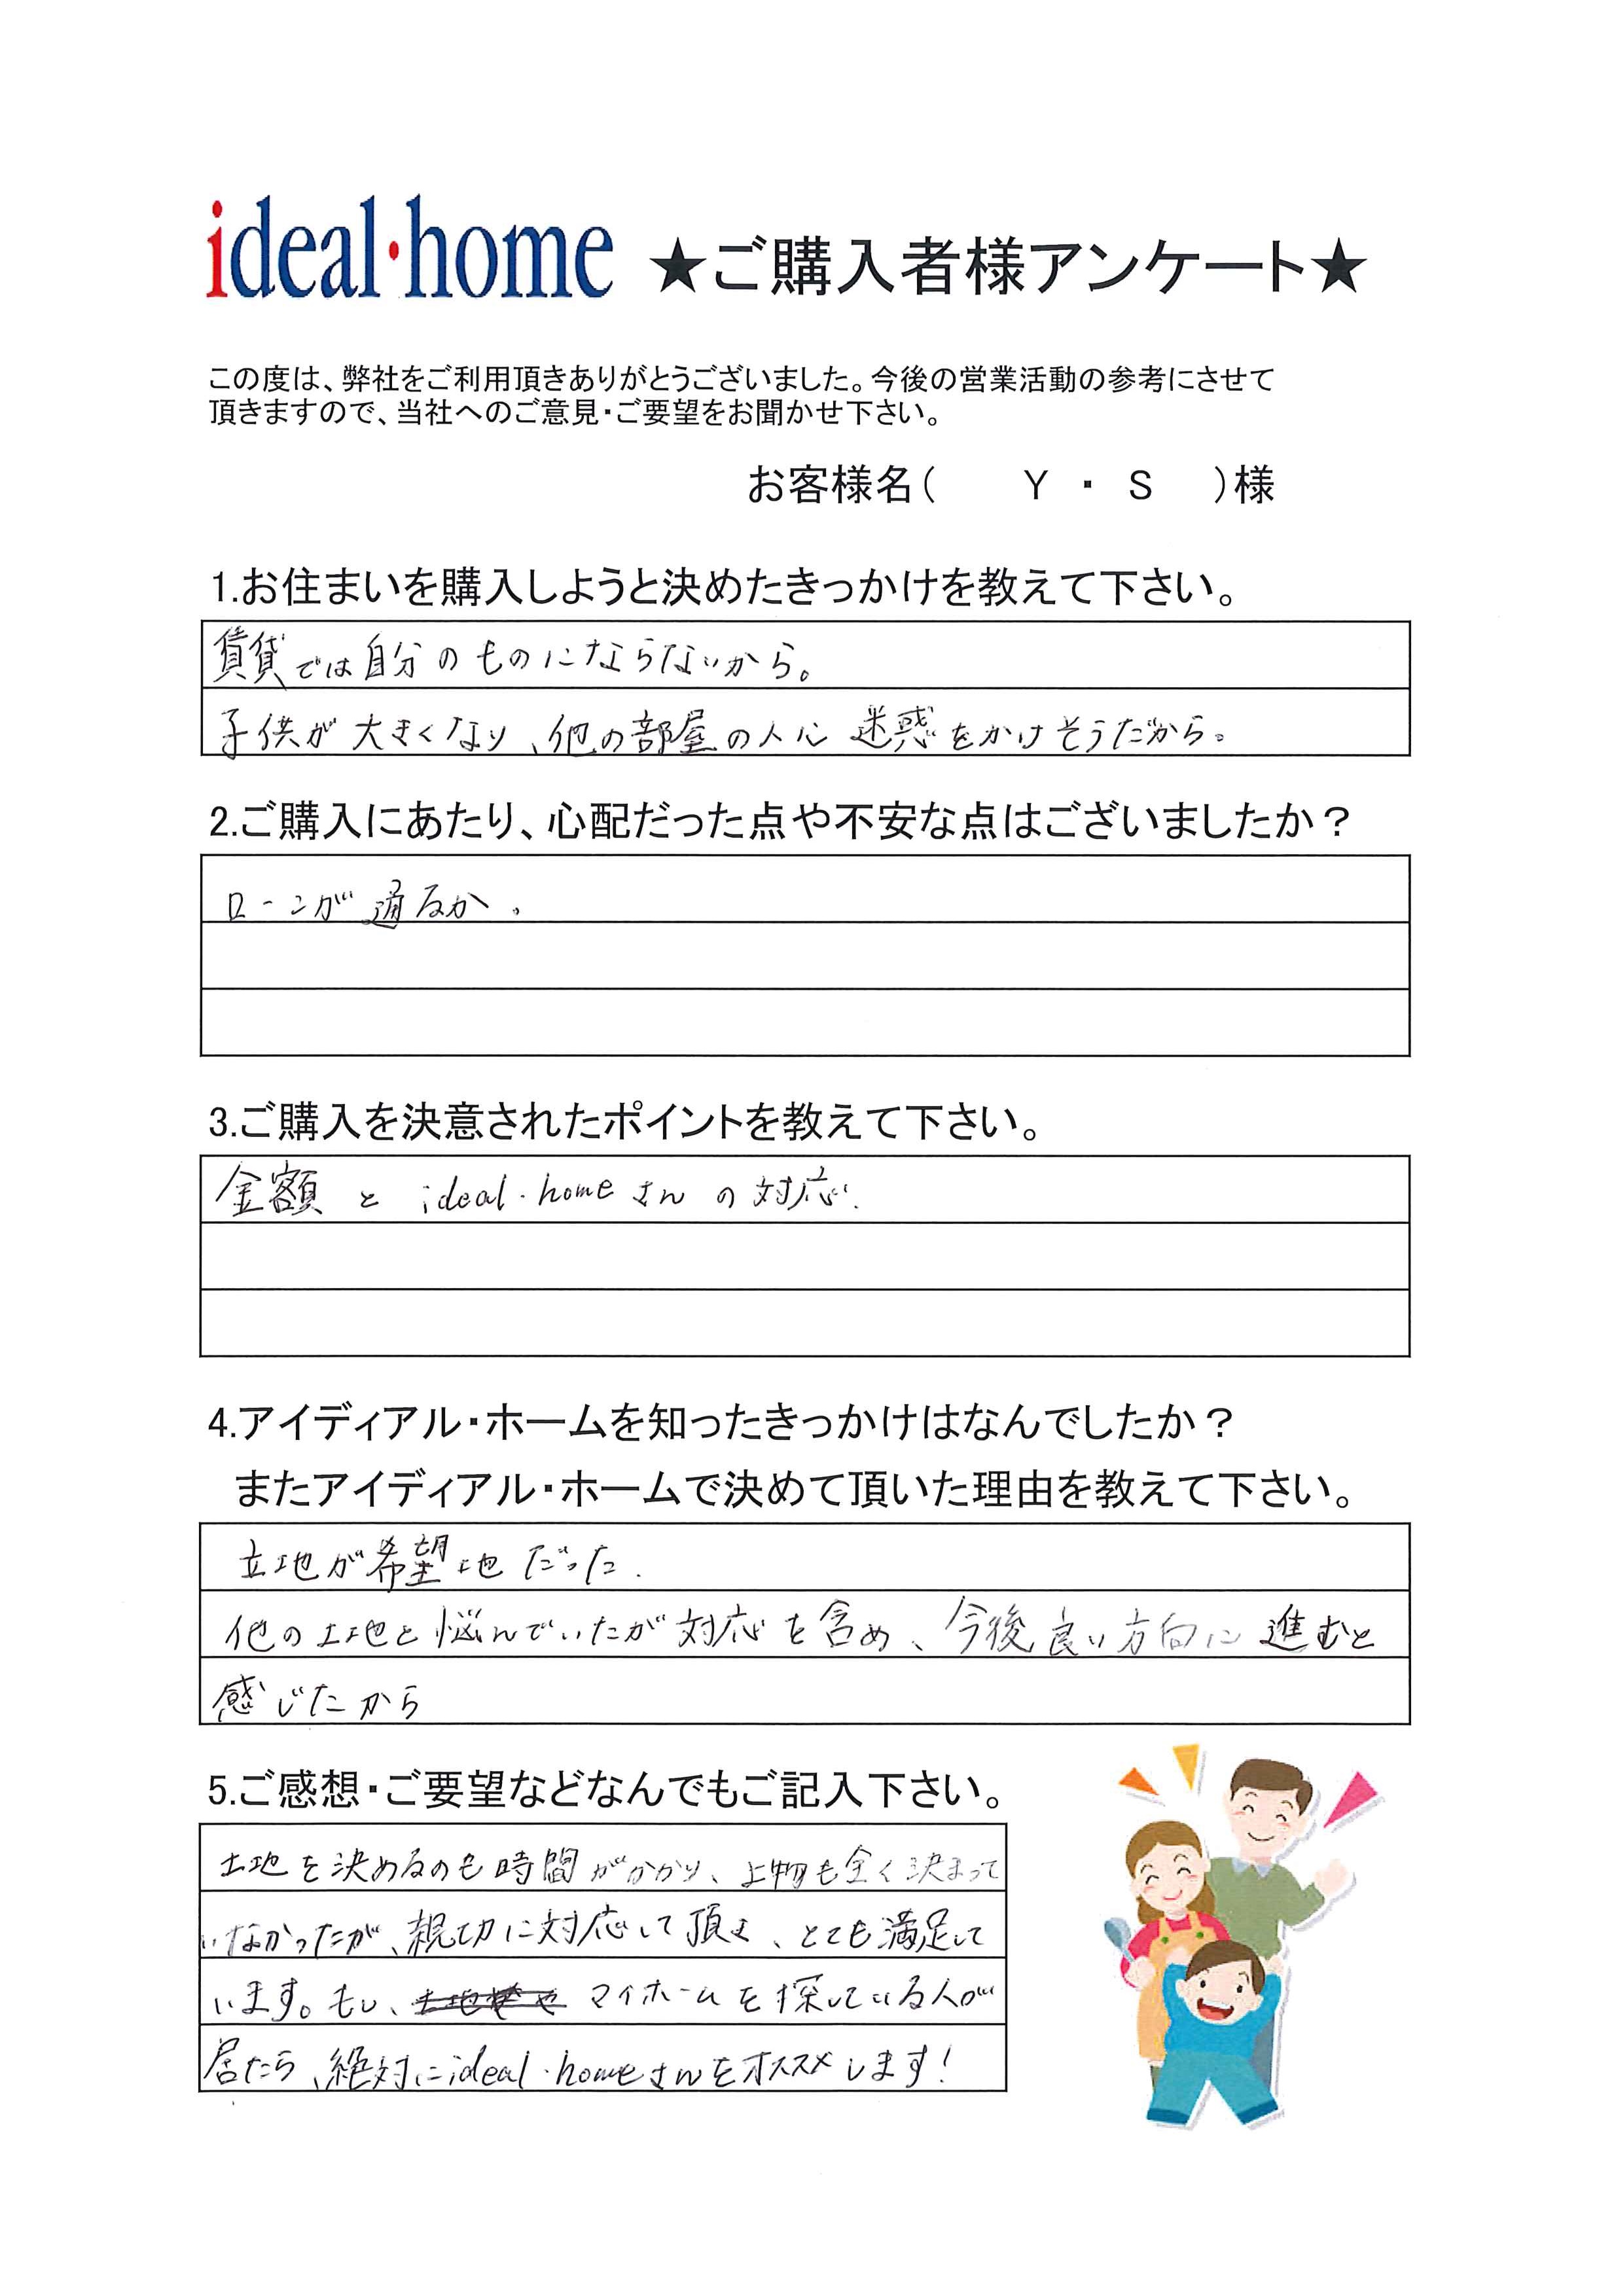 ideal・home ★ご購入者様アンケート★
この度は、弊社をご利用頂きありがとうございました。今後の営業活動の参考にさせて
頂きますので、当社へのご意見・ご要望をお聞かせ下さい。
お客様名（ Y ・ S ）様
1.お住まいを購入しようと決めたきっかけを教えて下さい。
賃貸では自分のものにならないから。
子供が大きくなり、他の部屋の人に迷惑をかけそうだから。
2.ご購入にあたり、心配だった点や不安な点はございましたか？
ローンが通るか。
3.ご購入を決意されたポイントを教えて下さい。
金額と ideal・homeさんの対応.
4.アイディアル・ホームを知ったきっかけはなんでしたか？
またアイディアル・ホームで決めて頂いた理由を教えて下さい。
立地が希望地だった.
他の土地と悩んでいたが対応を含め、今後良い方向に進むと
感じたから
5.ご感想・ご要望などなんでもご記入下さい。
土地を決めるのも時間がかかり、上物も全く決まって
いなかったが、親切に対応して頂き、とても満足して
います。もし、マイホームを探している人が
居たら、絶対にideal・homeさんをオススメします!